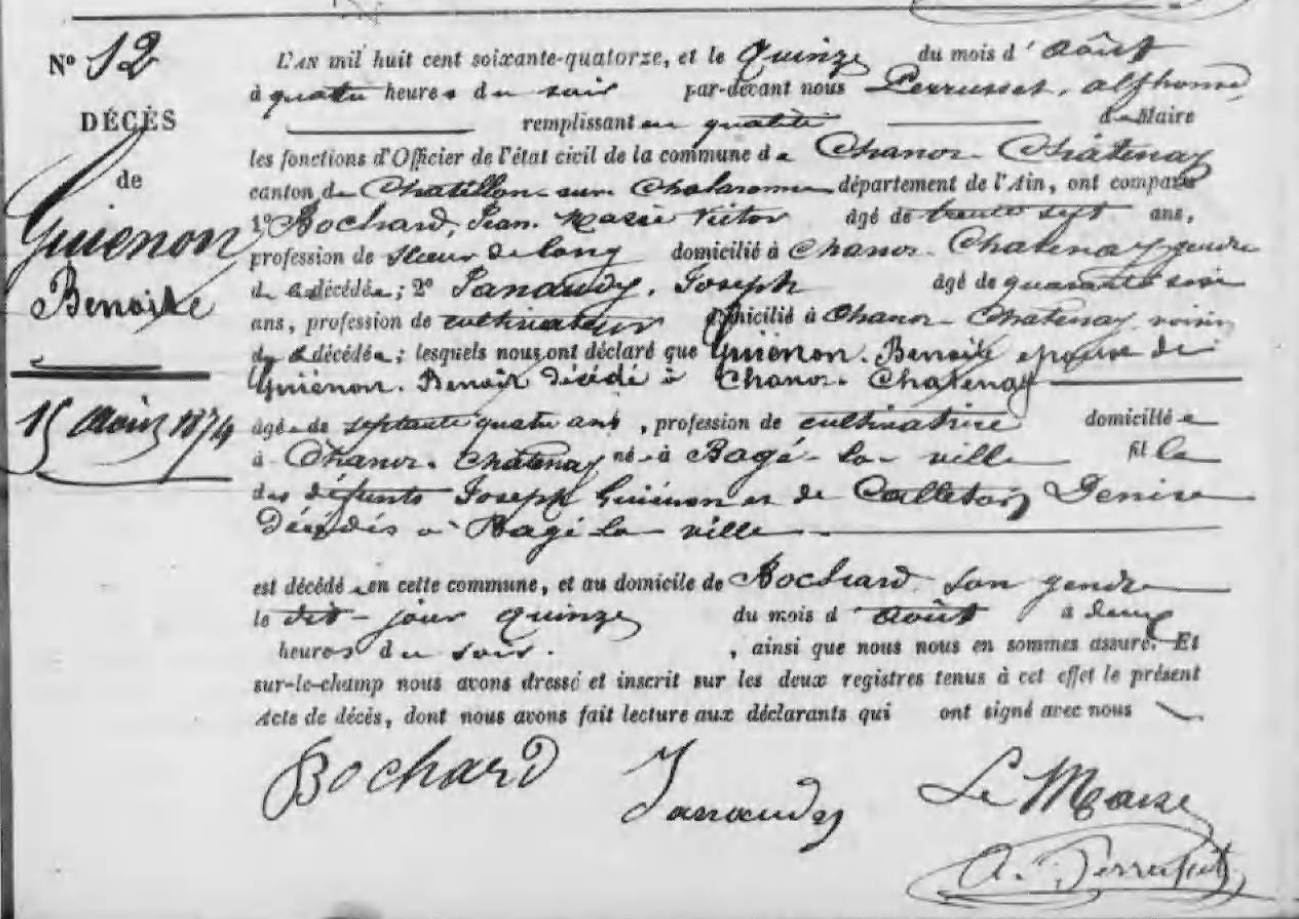 N° 12
DÉCÈS
de
Guienon
Benoite
15 Août 1874
L'AN mil huit cent soixante-quatorze, et le quinze du mois d' Août
à quatre heures du soir par-devant nous Perrusset, alphonse,
remplissant en qualité de Maire
les fonctions d'Officier de l'état civil de la commune de Chanoz-Châtenay
canton de Chatillon-sur-Chalaronne département de l'Ain, ont comparu
1° Bochard, Jean-Marie Victor âgé de trente sept ans,
profession de scieur de long domicilié à Chanoz-Chatenay gendre
de la décédée; 2° Janaudy, Joseph âgé de quarante
ans, profession de cultivateur domicilié à Chanoz-Chatenay voisin
de la décédée; lesquels nous ont déclaré que Guiénon. Benoite épouse de
Guiénon. Benoit décédé à Chanoz-Chatenay
âgée de septante quatre ans, profession de cultivatrice domiciliée
à Chanoz-Châtenay née à Bagé-la-ville fille
des défunts Joseph Guiénon et de Denise
Décédés à Bagé-la ville
est décédée en cette commune, et au domicile de Bochard son gendre
le dit-jour quinze du mois d' Août à deux
heures du soir. , ainsi que nous nous en sommes assuré. Et
sur-le-champ nous avons dressé et inscrit sur les deux registres tenus à cet effet le présent
Acte de décès, dont nous avons fait lecture aux déclarants qui ont signé avec nous
Bochard Janaudy Le Maire
A. Perrusset